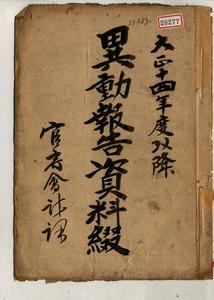 11383
20277
大正十四年度以降
異動報告資料綴
官房会計課